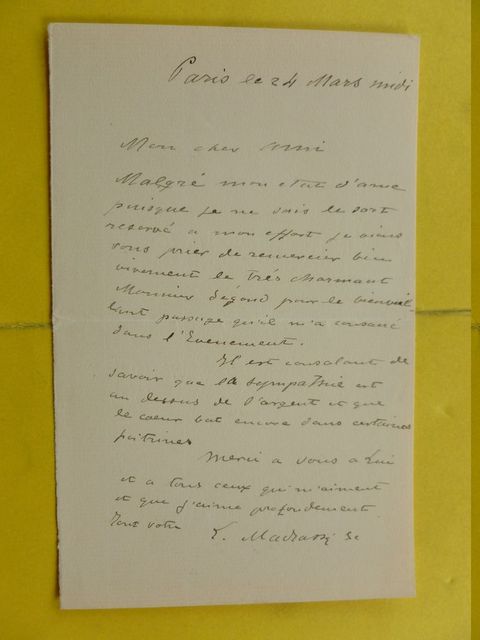 Paris le 24 Mars midi
Mon cher Ami
Malgré mon etat d'ame
puisque je ne sais le sort
reservé a mon effort je viens
vous prier de remercier bien
vivement le très charmant
Monsieur pour le bienveil-
lant passage qu'il m'a consacré
dans l'Evenement.
Il est consolant de
savoir que la sympathie est
au dessus de l'argent et que
le coeur bat encore dans certaines
poitrines
Merci a vous a Lui
et a tous ceux qui m'aiment
et que j'aime profondement
Tout votre L. Madrassi